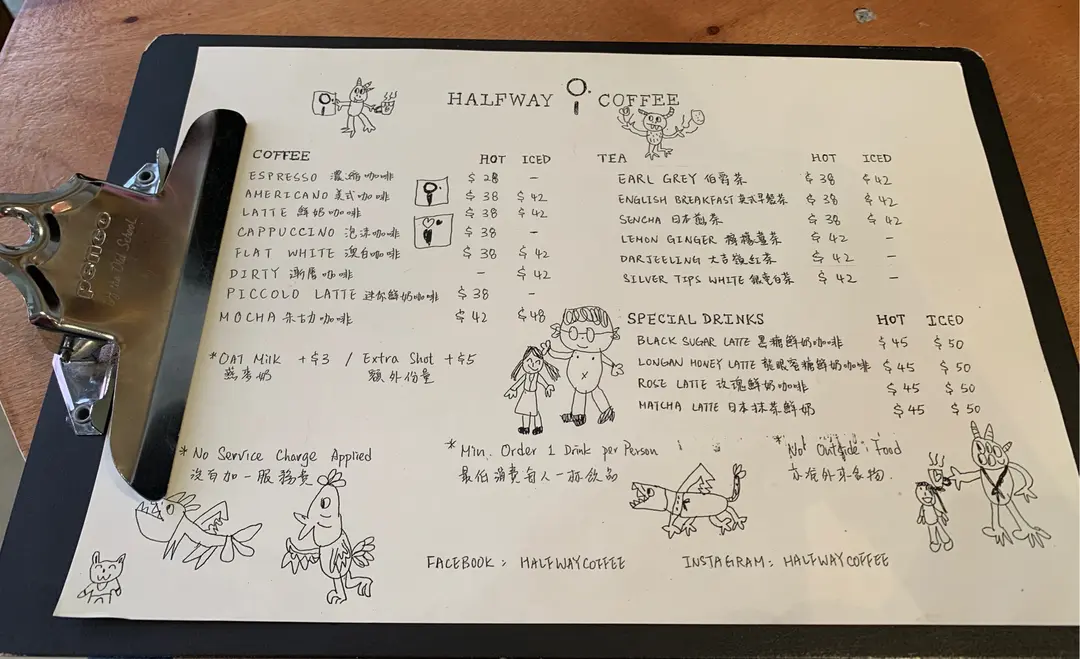 HALFWAY COFFEE
COFFEE HOT ICED
ESPRESSO 濃縮咖啡 $28 –
AMERICANO 美式咖啡 $38 $42
LATTE 鮮奶咖啡 $38 $42
CAPPUCCINO 泡沫咖啡 $38 –
FLAT WHITE 澳白咖啡 $38 $42
DIRTY 漸層咖啡 – $42
PICCOLO LATTE 迷你鮮奶咖啡 $38 –
MOCHA 朱古力咖啡 $42 $48
*OAT Milk +$3 / Extra Shot +$5
燕麥奶 額外份量
TEA HOT ICED
EARL GREY 伯爵茶 $38 $42
ENGLISH BREAKFAST 英式早餐茶 $38 $42
SENCHA 日本煎茶 $38 $42
LEMON GINGER 檸檬薑茶 $42 –
DARJEELING 大吉嶺紅茶 $42 –
SILVER TIPS WHITE 銀毫白茶 $42 –
SPECIAL DRINKS HOT ICED
BLACK SUGAR LATTE 黑糖鮮奶咖啡 $45 $50
LONGAN HONEY LATTE 龍眼蜜糖鮮奶咖啡 $45 $50
ROSE LATTE 玫瑰鮮奶咖啡 $45 $50
MATCHA LATTE 日本抹茶鮮奶 $45 $50
*No Service Charge Applied
沒有加一服務費
*Min. Order 1 Drink per Person
最低消費每人一杯飲品
*Not Outside Food
外來食物
FACEBOOK: HALFWAYCOFFEE
INSTAGRAM: HALFWAYCOFFEE
penco
Old School